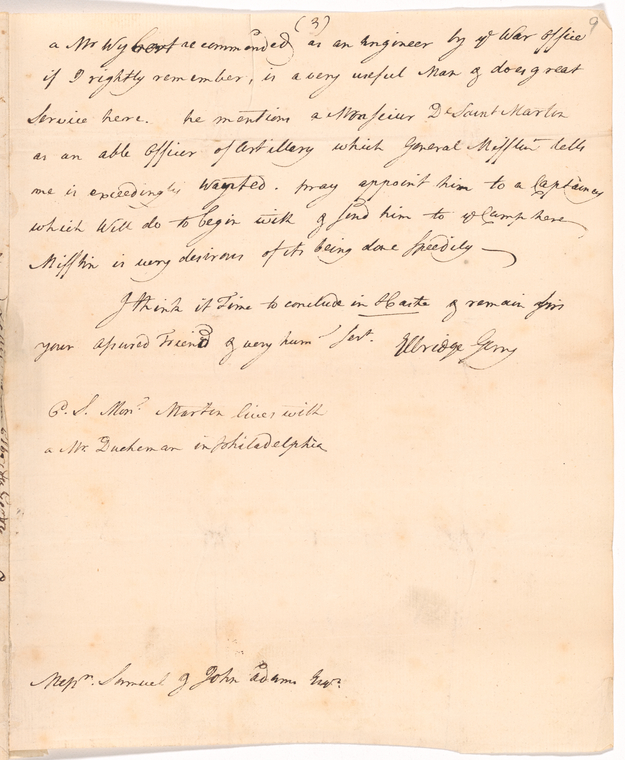 (3)
9
a Mr Wybert recommended as an Engineer by ye War office
if I rightly remember, is a very useful Man & does great
Service here. he mentions a Monsieur De Saint Martin
as an able Officer of Artillery which General Mifflin tells
me is exceedingly wanted. pray appoint him to a Captaincy
which will do to begin with & send him to ye Camp here
Mifflin is very desirous of its being done speedily
I think it Time to conclude in Haste & remain sirs
your assured Friend & very hum Sert. Elbridge Gerry
P.S. Monr Martin lives with
a Mr Ducheman in philadelphia
Messrs. Samuel & John Adams Esqr.